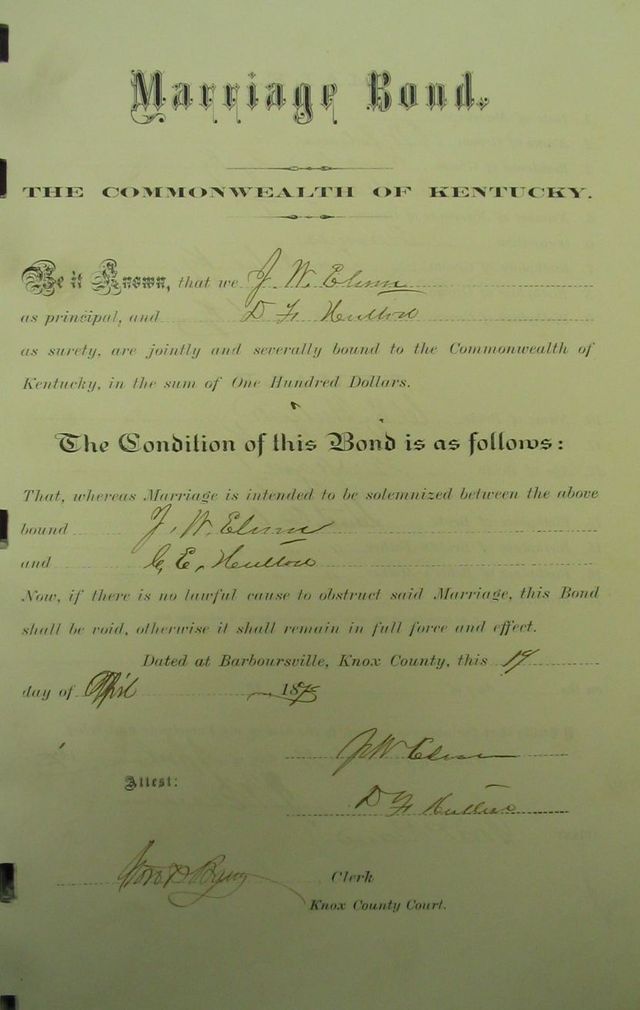 Marriage Bond.
THE COMMONWEALTH OF KENTUCKY.
Be it Known, that we J. W.
as principal, and D F
as surety, are jointly and severally bound to the Commonwealth of
Kentucky, in the sum of One Hundred Dollars.
The Condition of this Bond is as follows:
That, whereas Marriage is intended to be solemnized between the above
bound J. W.
and C. E.
Now, if there is no lawful cause to obstruct said Marriage, this Bond
shall be void, otherwise it shall remain in full force and effect.
Dated at Barboursville, Knox County, this
day of April 187
J W
Attest:
D F
Clerk
Knox County Court.